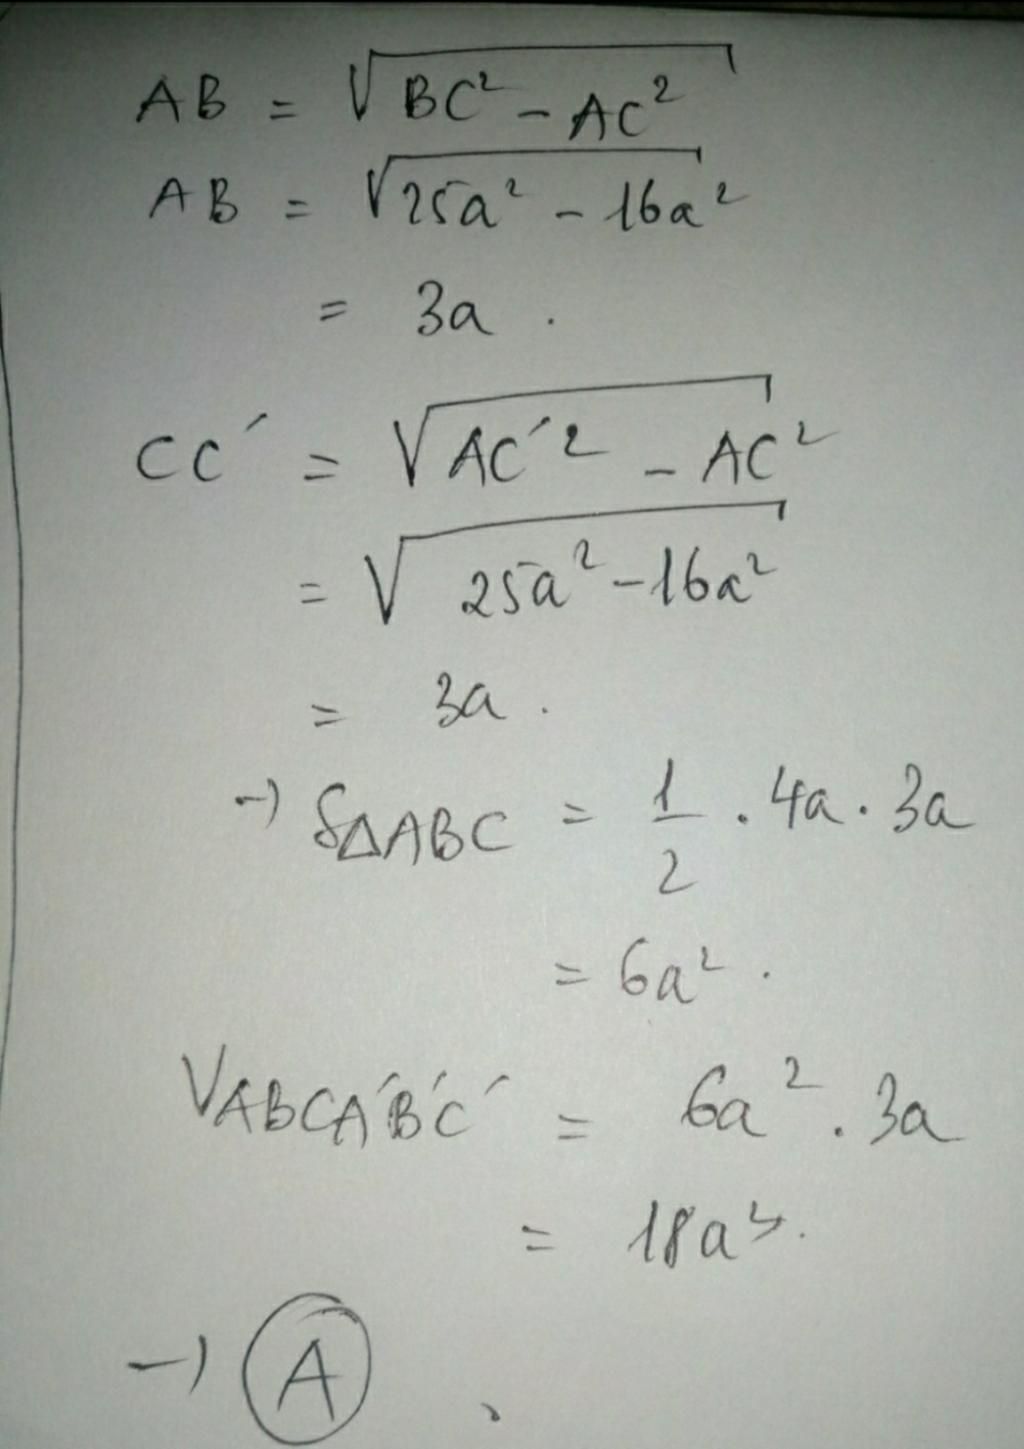 AB = √BC² - AC²
AB = √25a² - 16a²
= 3a.
CC' = √AC'² - AC²
= √25a² - 16a²
= 3a.
→ S△ABC = 1/2 . 4a . 3a
= 6a².
VABCA'B'C' = 6a² . 3a
= 18a³.
→ A